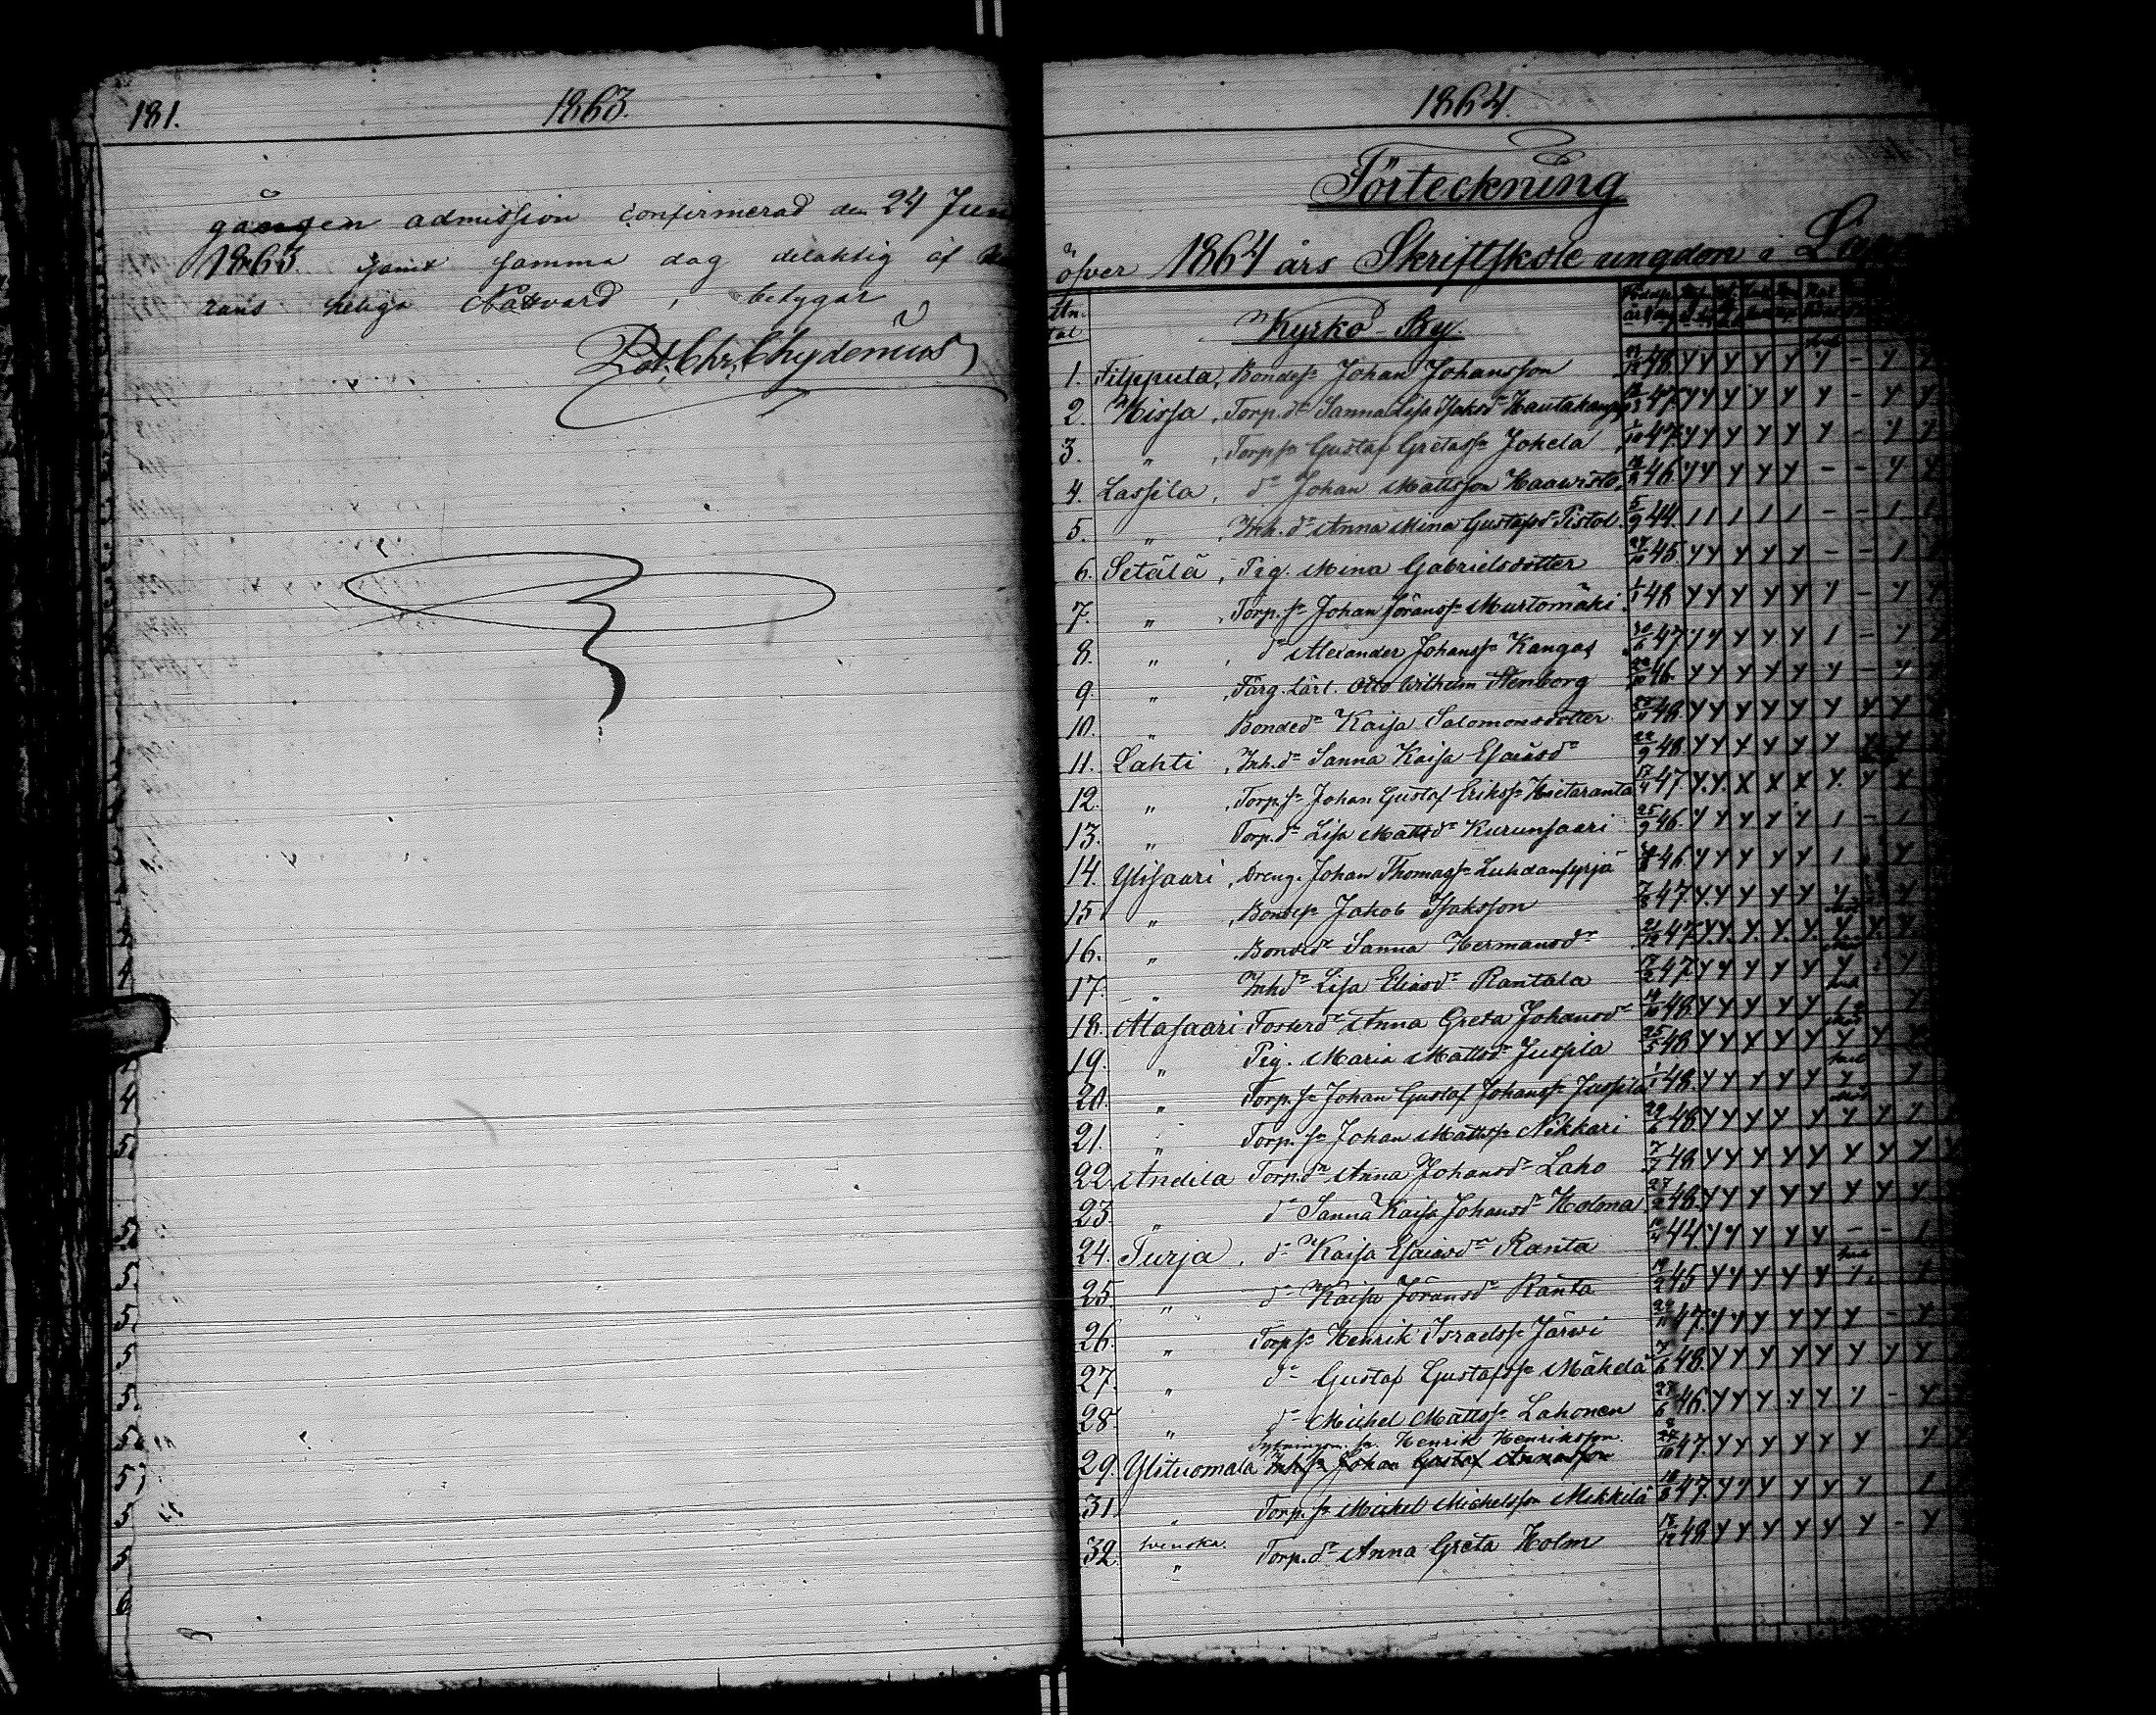 181. 1863.
gången admission confirmerad den 24 Jun
1863 samt samma dag delaktig af
rans heliga Nattvard, betygar
Pet. Chr. Chydenius
1864.
Förteckning
öfver 1864 års Skriftskole ungdom i Lap
Kyrko-By.
1. Filppula, Bondes. Johan Johansson 48. Y Y Y Y Y Y - Y
2. Hissa, Torp.dr Sanna Lisa Isaksdr Hautakangas 47. Y Y Y Y Y Y - Y Y
3. " , Torpsn Gustaf Gretassn Jokela 1/10 47. Y Y Y Y Y Y - Y Y
4. Lassila, dn Johan Mattsson Haawisto 46. Y Y Y Y Y - - Y Y
5. " , Inh.dr Anna Mina Gustafsdr Pistol 5/9 44. 1 1 1 1 1 - - 1
6. Setälä, Pig. Mina Gabrielsdotter 45. Y Y Y Y Y - - 1
7. " , Torp.sn Johan Göranssn Murtomäki 1/1 48 Y Y Y Y Y Y - Y
8. " , dn Alexander Johanssn Kangas 47 Y Y Y Y Y 1 - Y
9. " , Färg. Lärl. Otto Wilhelm Stenborg 46. Y Y Y Y Y Y - Y
10. " Bondedr Kaisa Salomonsdotter 48. Y Y Y Y Y Y Y Y
11. Lahti, Inh.dr Sanna Kaisa Esaiasdr 22/9 48. Y Y Y Y Y Y Y
12. " , Torp.sn Johan Gustaf Erikssn Hietaranta 17/4 47. Y. Y. X X X Y. Y X
13. " Torp.dr Lisa Mattsdr Kurunsaari 25/9 46. Y Y Y Y Y 1 - 1
14. Ylisaari, Dreng. Johan Thomassn Luhdansyrjä 46 Y Y Y Y Y 1 Y
15 " , Bondesn Jakob Isaksson 47. Y. Y Y Y Y Y Y
16. " . Bondedr Sanna Hermansdr 21/12 47. Y. Y. Y. Y. Y. Y. Y. Y
17. " Inhdr Lisa Eliasdr Rantala 17/2 47. Y Y Y Y Y Y Y
18. Alasaari Fosterdr Anna Greta Johansdr 48. Y Y Y Y Y Y
19. " Pig. Maria Mattsdr Juspla 25/5 48 Y Y Y Y Y Y Y
20. " Torp.sn Johan Gustaf Johanssn Juspila 1/1 48. Y Y Y Y Y Y Y
21. " Torp.sn Johan Mattssn Nikkari 29/6 48 Y Y Y Y Y Y Y Y
22. Andila Torp.dr Anna Johansdr Laho 7/7 48. Y Y Y Y Y Y Y Y
23. " dr Sanna Kaisa Johansdr Holma 27/2 48. Y Y Y Y Y Y Y Y
24. Turja, dr Kaisa Esaiasdr Ranta 44. Y Y Y Y Y - - 1
25. " dr Kaisa Göransdr Ranta 45 Y Y Y Y Y Y. Y
26. " Torpsn Henrik Israelssn Järwi 47. Y Y Y Y Y Y - Y
27. " dn Gustaf Gustafssn Mäkelä 48. Y Y Y Y Y Y Y Y
28 " dn Michel Mattssn Lahonen 27/6 46. Y Y Y Y Y Y - Y
Henrik Henriksson.
29. Ylituomala Inhsn Johan Gustaf Annasson 47. Y Y Y Y Y Y Y
31. " Torp.sn Mickel Michelsson Mikkilä 47. Y Y Y Y Y Y 1
Svenska.
32. " Torp.dr Anna Greta Holm 48. Y Y Y Y Y Y - Y